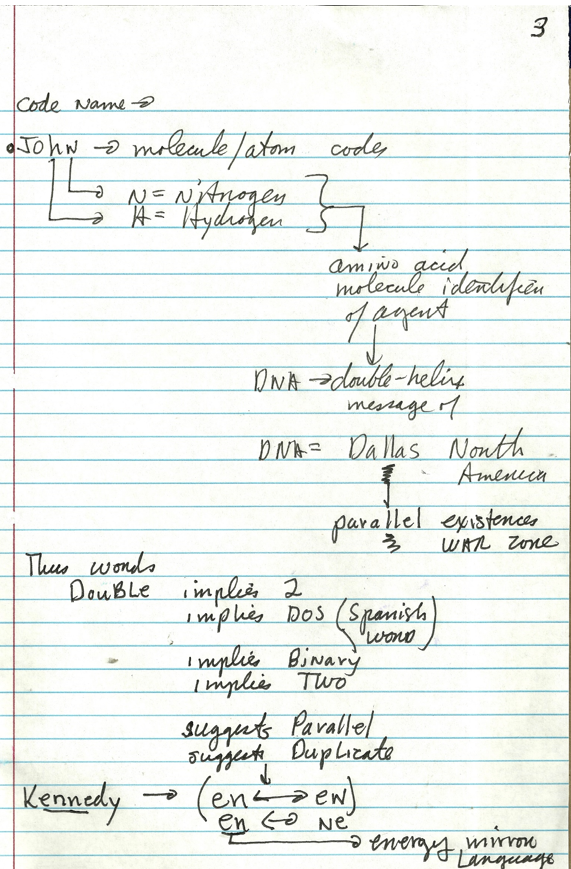 3
Code Name →
• JOHN → molecule/atom codes
N = Nitrogen
H = Hydrogen
amino acid
molecule identifier
of agent
DNA → double-helix
message of
DNA = Dallas North
America
parallel existences
WAR zone
Thus words
DouBLe implies 2
implies DOS (Spanish
word)
implies BiNary
implies TWO
suggests Parallel
suggests Duplicate
Kennedy → (en ↔ eN)
en ↔ Ne
→ energy mirror
Language